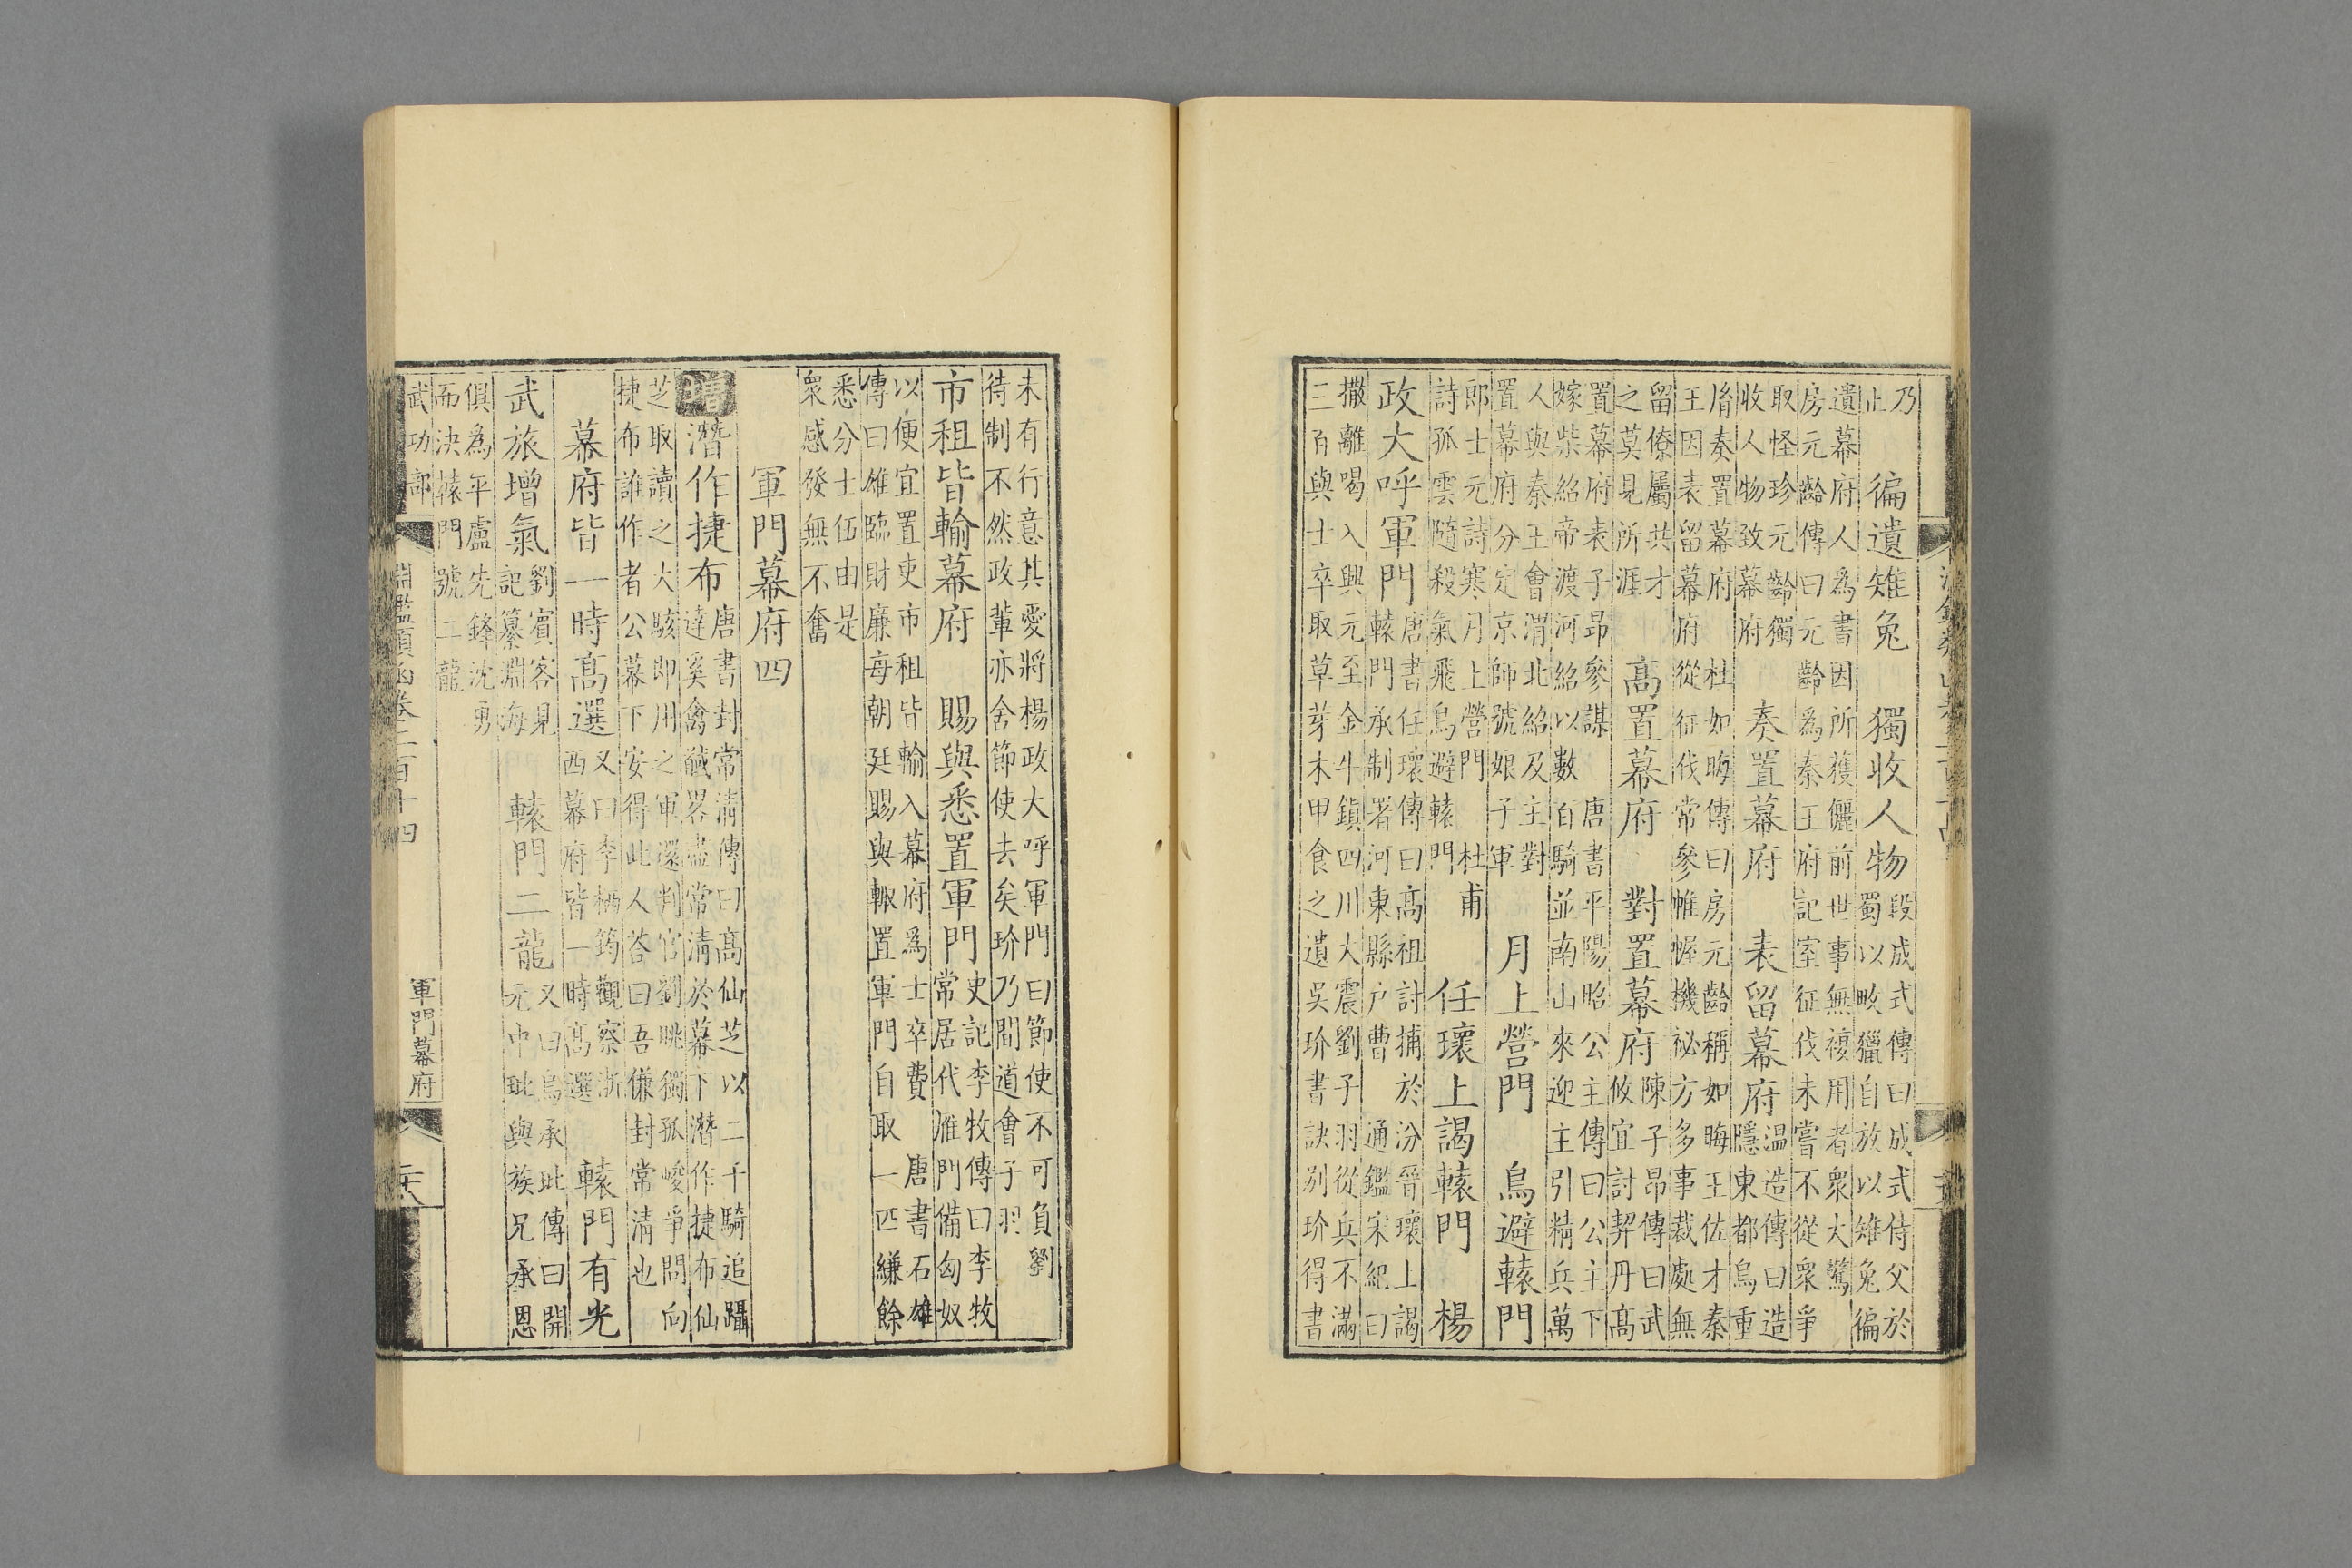 乃
止
徧遺雉兔
獨收人物
段成式傳曰成式侍父於
蜀以畋獵自放以雉兔徧
遺幕府人為書因所獲儷前世事無複用者衆大驚
房元齡傳曰元齡為秦王府記室征伐未嘗不從衆爭
取怪珍元齡獨
收人物致幕府
奏置幕府
表留幕府
温造傳曰造
隱東都烏重
㣧奏置幕府
杜如晦傳曰房元齡稱如晦王佐才秦
王因表留幕府從征伐常參帷幄機祕方多事裁處無
留僚屬共才
之莫見所涯
高置幕府
對置幕府
陳子昂傳曰武
攸宜討契丹高
置幕府表子昂參謀
唐書平陽昭公主傳曰公主下
嫁柴紹帝渡河紹以數百騎並南山來迎主引精兵萬
人與秦王會渭北紹及主對
置幕府分定京師號娘子軍
月上營門
鳥避轅門
郎士元詩寒月上營門
杜甫
詩孤雲隨殺氣飛鳥避轅門
任瓌上謁轅門
楊
政大呼軍門
唐書任瓌傳曰高祖討捕於汾晉瓌上謁
轅門承制署河東縣戶曹
通鑑宋紀曰
撒離喝入興元至金牛鎮四川大震劉子羽從兵不滿
三百與士卒取草芽木甲食之遺吳玠書訣別玠得書
未有行意其愛將楊政大呼軍門曰節使不可負劉
待制不然政輩亦舍節使去矣玠乃間道會子羽
市租皆輸幕府
賜與悉置軍門
史記李牧傳曰李牧
常居代雁門備匈奴
以便宜置吏市租皆輸入幕府為士卒費
唐書石雄
傳曰雄臨財廉每朝廷賜與輙置軍門自取一匹縑餘
悉分士伍由是
衆感發無不奮
軍門幕府四
增
潛作捷布
唐書封常清傳曰高仙芝以二千騎追躡
達奚禽馘畧盡常清於幕下潛作捷布仙
芝取讀之大駭即用之軍還判官劉眺獨孤峻爭問向
捷布誰作者公幕下安得此人荅曰吾傔封常清也
幕府皆一時高選
又曰李栖筠觀察浙
西幕府皆一時高選
轅門有光
武旅增氣
劉賓客見
記纂淵海
轅門二龍
又曰烏承玼傳曰開
元中玼與族兄承恩
俱為平盧先鋒沈勇
而決轅門號二龍
武功部
淵鑑類函卷二百十四
軍門幕府